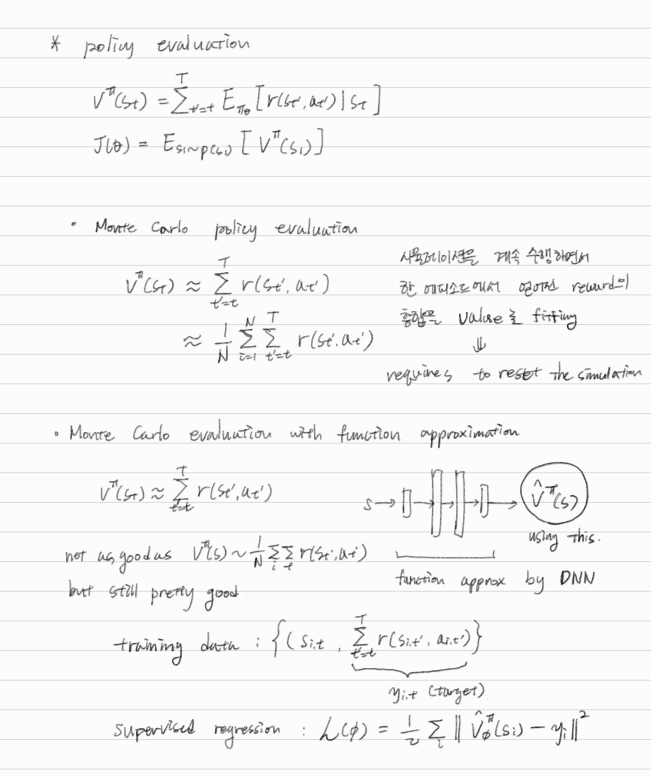 * policy evaluation
V^π(s_t) = Σ_{t'=t}^{T} E_{π_θ} [r(s_{t'}, a_{t'}) | s_t]
J(θ) = E_{s_1~p(s_1)} [V^π(s_1)]
• Monte Carlo policy evaluation
V^π(s_t) ≈ Σ_{t'=t}^{T} r(s_{t'}, a_{t'})
≈ 1/N Σ_{i=1}^{N} Σ_{t'=t}^{T} r(s_{t'}, a_{t'})
시뮬레이션을 계속 수행하면서
한 에피소드에서 얻어진 reward의
총합을 value로 fitting
⇓
requires to reset the simulation
• Monte Carlo evaluation with function approximation
V^π(s_t) ≈ Σ_{t'=t}^{T} r(s_{t'}, a_{t'})
s → → → V̂^π(s)
using this.
not as good as V^π(s) ~ 1/N Σ_i Σ_t r(s_{t'}, a_{t'})
but still pretty good
function approx by DNN
training data : {(s_{i,t}, Σ_{t'=t}^{T} r(s_{i,t'}, a_{i,t'}))}
y_{i,t} (target)
supervised regression : L(φ) = 1/2 Σ_i ‖ V̂^π_φ(s_i) − y_i ‖²